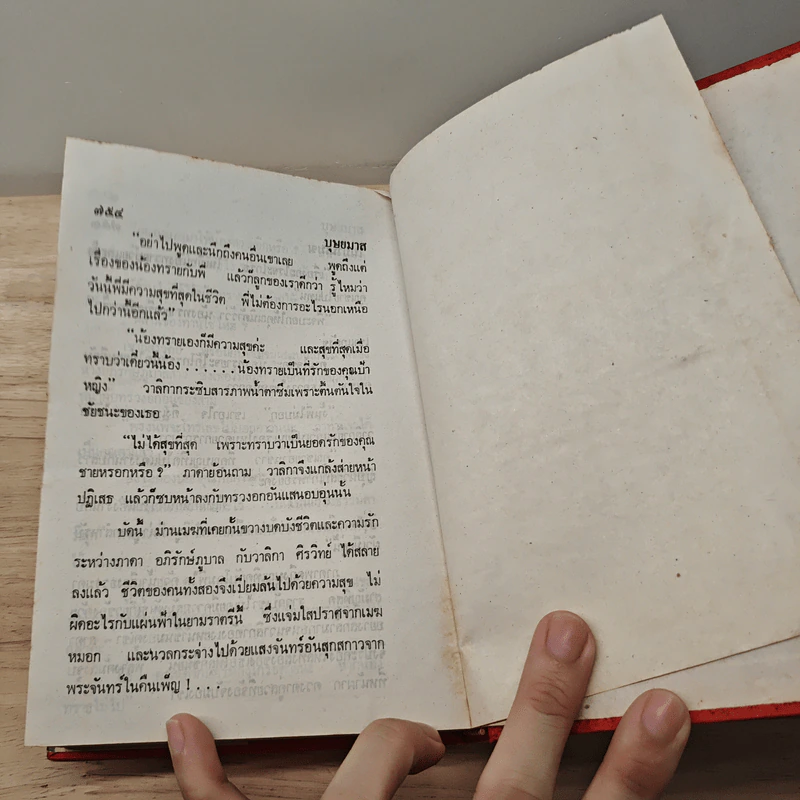 ๗๕๔
บุษยมาส
“อย่าไปพูดและนึกถึงคนอื่นเขาเลย พูดถึงแต่
เรื่องของน้องทรายกับพี่ แล้วก็ลูกของเราดีกว่า รู้ไหมว่า
วันนี้พี่มีความสุขที่สุดในชีวิต พี่ไม่ต้องการอะไรนอกเหนือ
ไปกว่านี้อีกแล้ว”
“น้องทรายเองก็มีความสุขค่ะ และสุขที่สุดเมื่อ
ทราบว่าเดี๋ยวนี้น้อง . . . . . . น้องทรายเป็นที่รักของคุณป้า
หญิง” วาลิกากระซิบสารภาพน้ำตาซึมเพราะตื้นตันใจใน
ชัยชนะของเธอ
“ไม่ได้สุขที่สุด เพราะทราบว่าเป็นยอดรักของคุณ
ชายหรอกหรือ ?” ภาดาย้อนถาม วาลิกาจึงแกล้งส่ายหน้า
ปฏิเสธ แล้วก็ซบหน้าลงกับทรวงอกอันแสนอบอุ่นนั้น
บัดนี้ ม่านเมฆที่เคยกั้นขวางบดบังชีวิตและความรัก
ระหว่างภาดา อภิรักษ์ภูบาล กับวาลิกา ศิรวิทย์ ได้สลาย
ลงแล้ว ชีวิตของคนทั้งสองจึงเปี่ยมล้นไปด้วยความสุข ไม่
ผิดอะไรกับแผ่นฟ้าในยามราตรีนี้ ซึ่งแจ่มใสปราศจากเมฆ
หมอก และนวลกระจ่างไปด้วยแสงจันทร์อันสุกสกาวจาก
พระจันทร์ในคืนเพ็ญ ! . . .